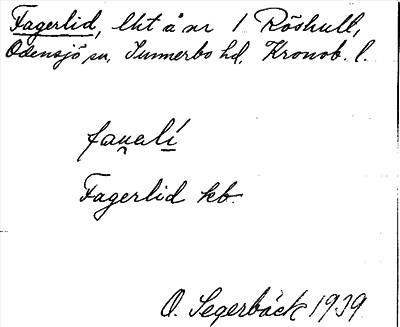 Fagerlid, lht å nr 1 Röshult,
Odensjö sn, Sunnerbo hd, Kronob. l.
fau̯alí
Fagerlid kb.
O. Segerbäck 1939